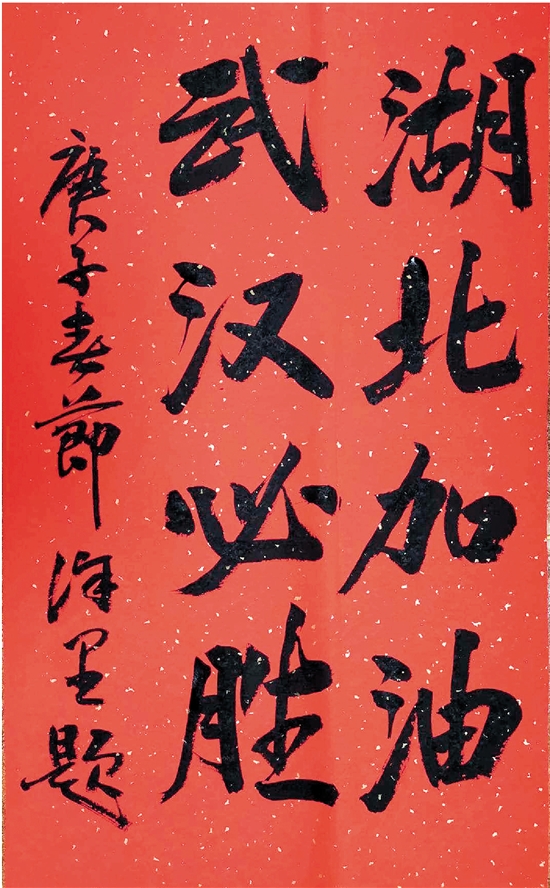 湖北加油
武汉必胜
庚子春節 里题